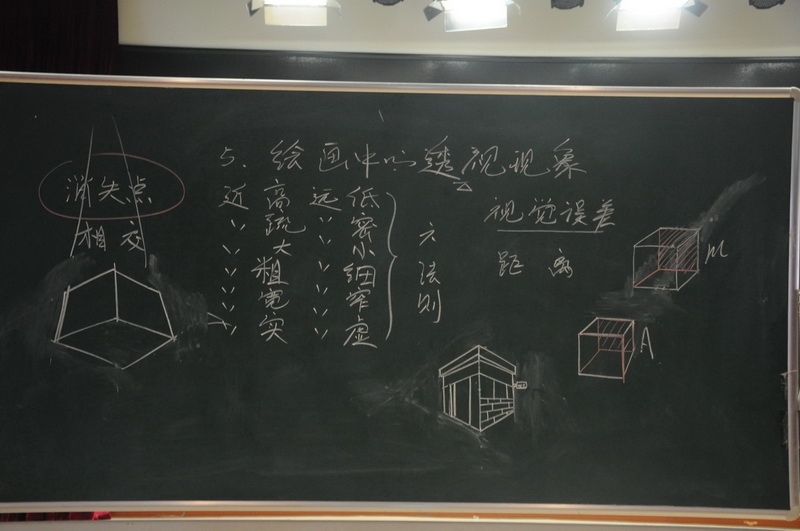 5、绘画中的透视现象
消失点
相交
近高远低
〃疏〃密
〃大〃小
〃粗〃细
〃宽〃窄
〃实〃虚
六法则
视觉误差
距离
M
A